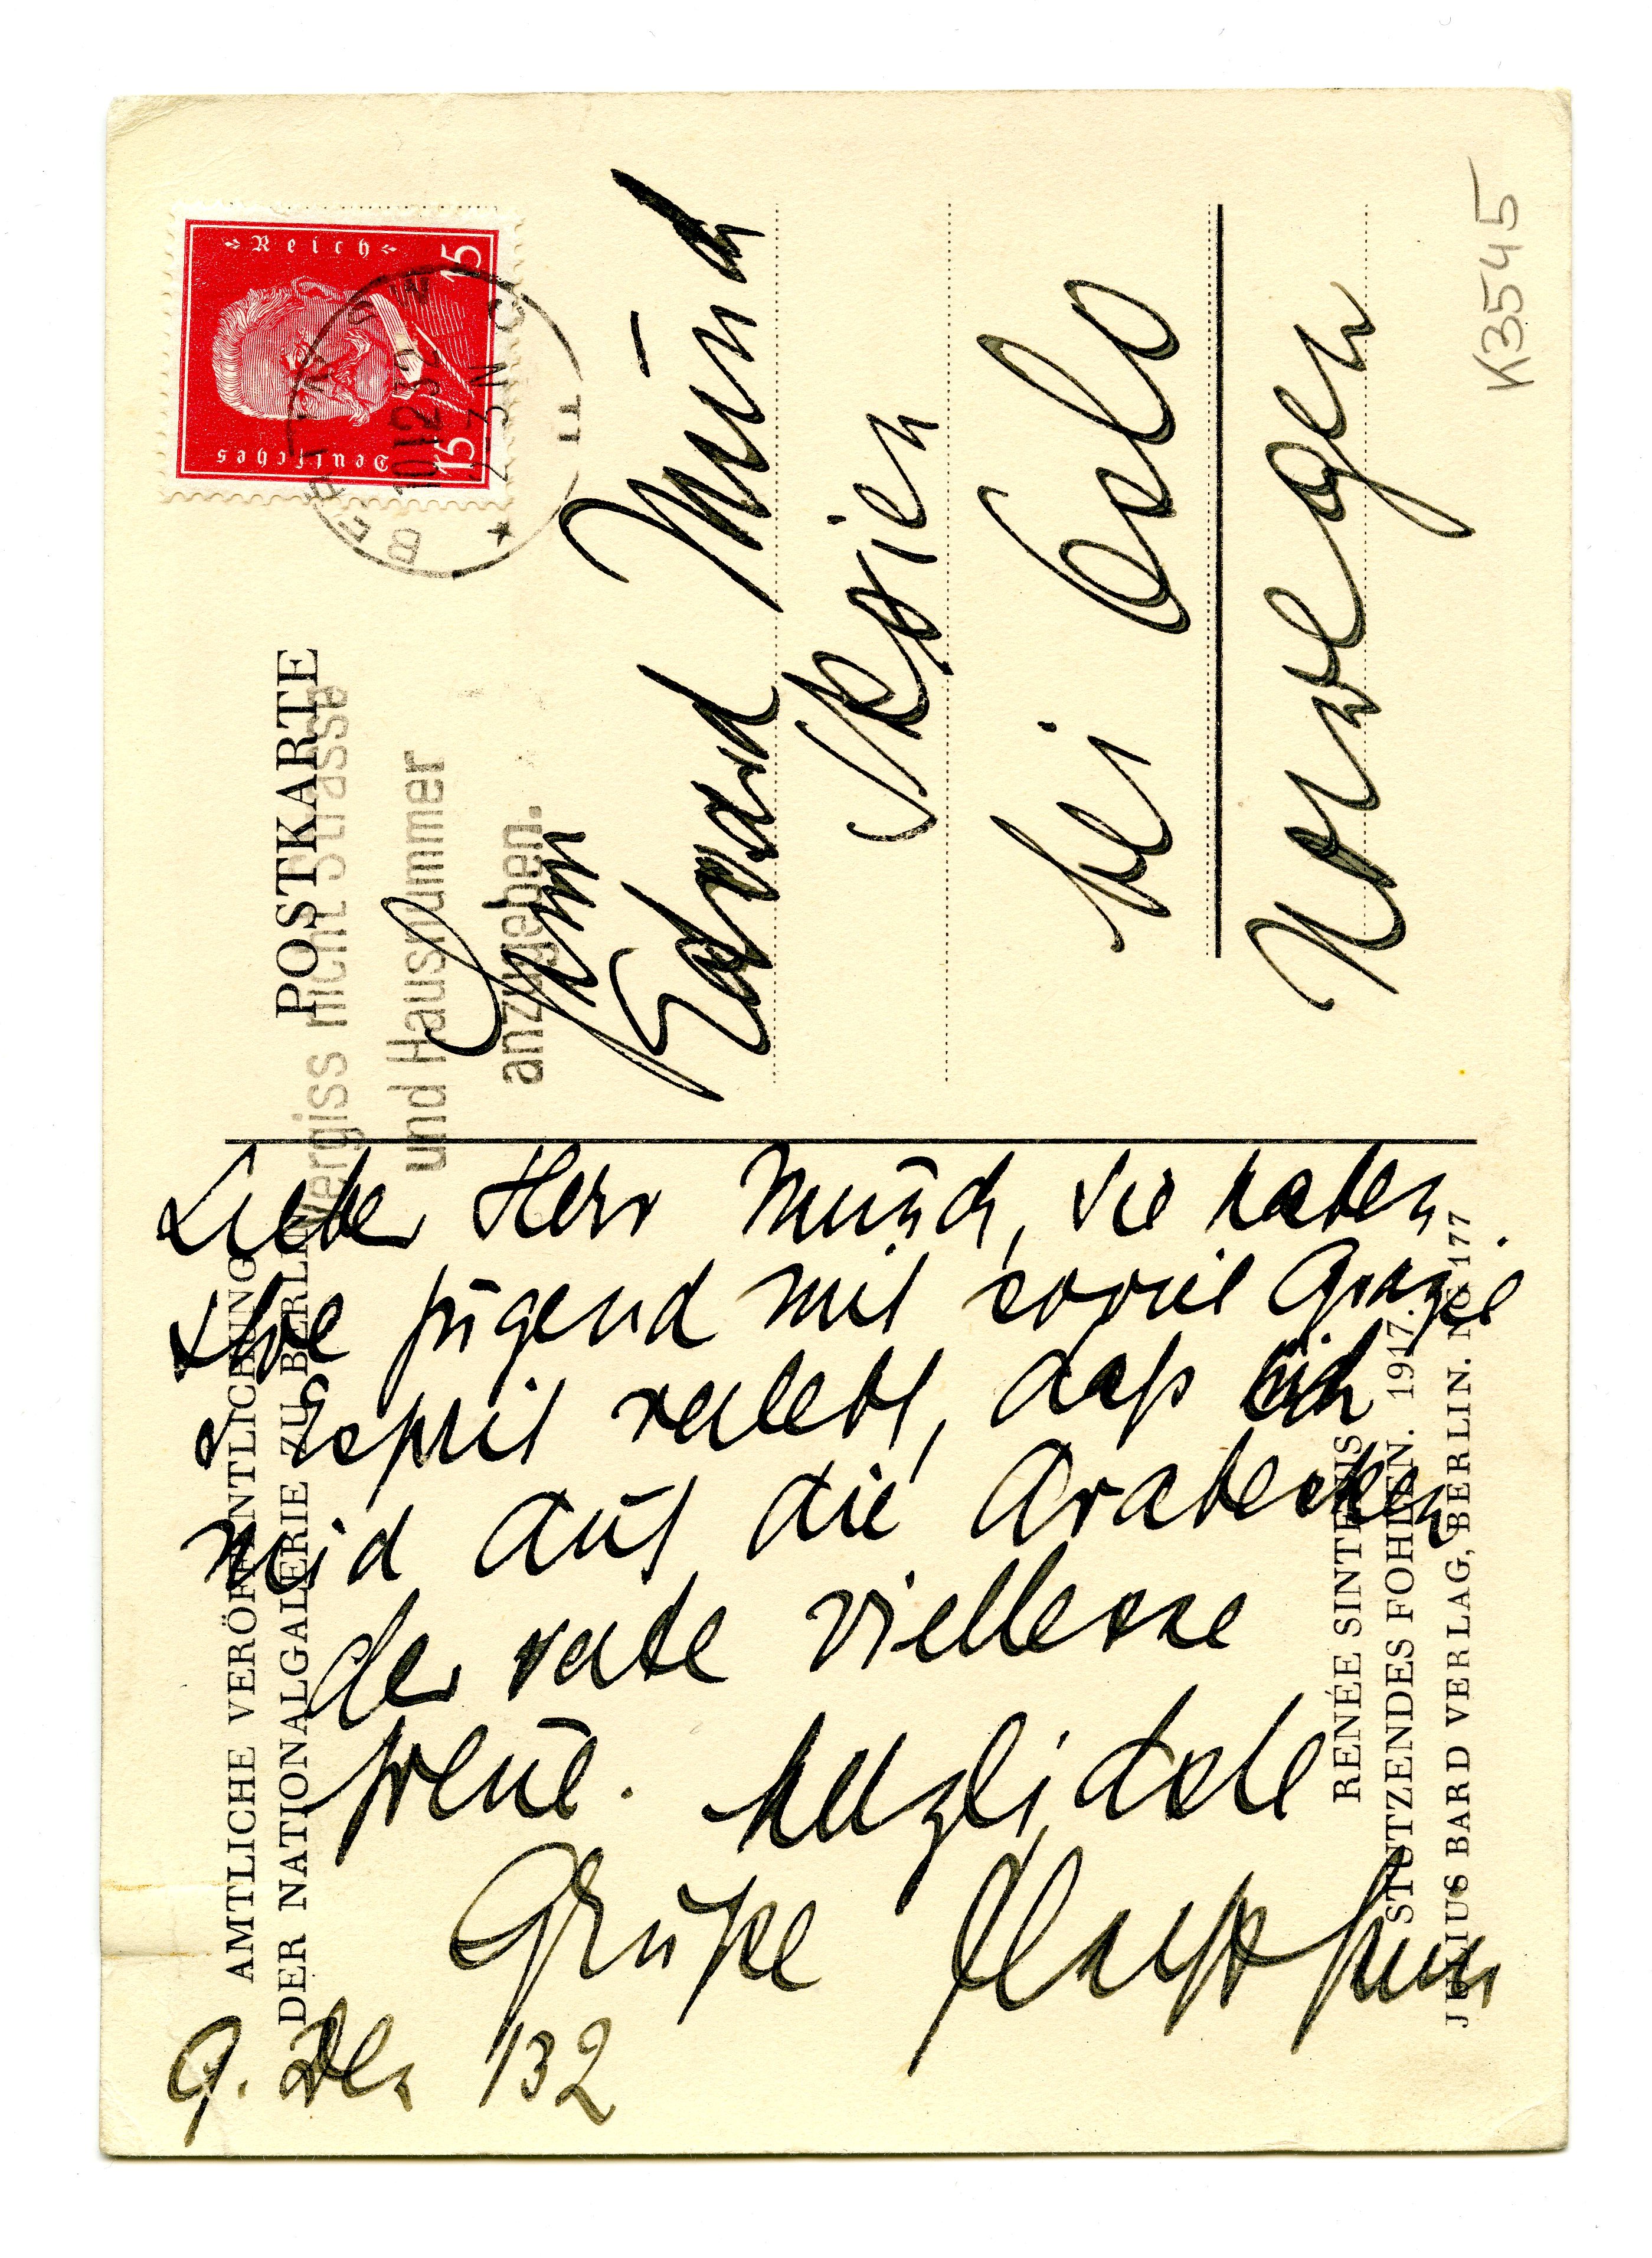 Lieber Herr Munch, Sie haben
Ihre Jugend mit soviel Grazie
u Esprit verlebt, daß ich
mich auf die Arabesken
der verte viellesse
freue. herzlichste
Grüße
9. Dez 132
AMTLICHE VERÖFFENTLICHUNG
DER NATIONALGALERIE ZU BERLIN
RENÉE SINTENIS
STÜTZENDES FOHLEN. 1917.
JULIUS BARD VERLAG, BERLIN. No 177
POSTKARTE
Vergiss nicht Strasse
und Hausnummer
anzugeben.
Deutsches Reich
15 15
BERLIN SW
10.12.32
2-3 N
11
Edvard Munch
Skøien
bei Oslo
Norwegen
K3545